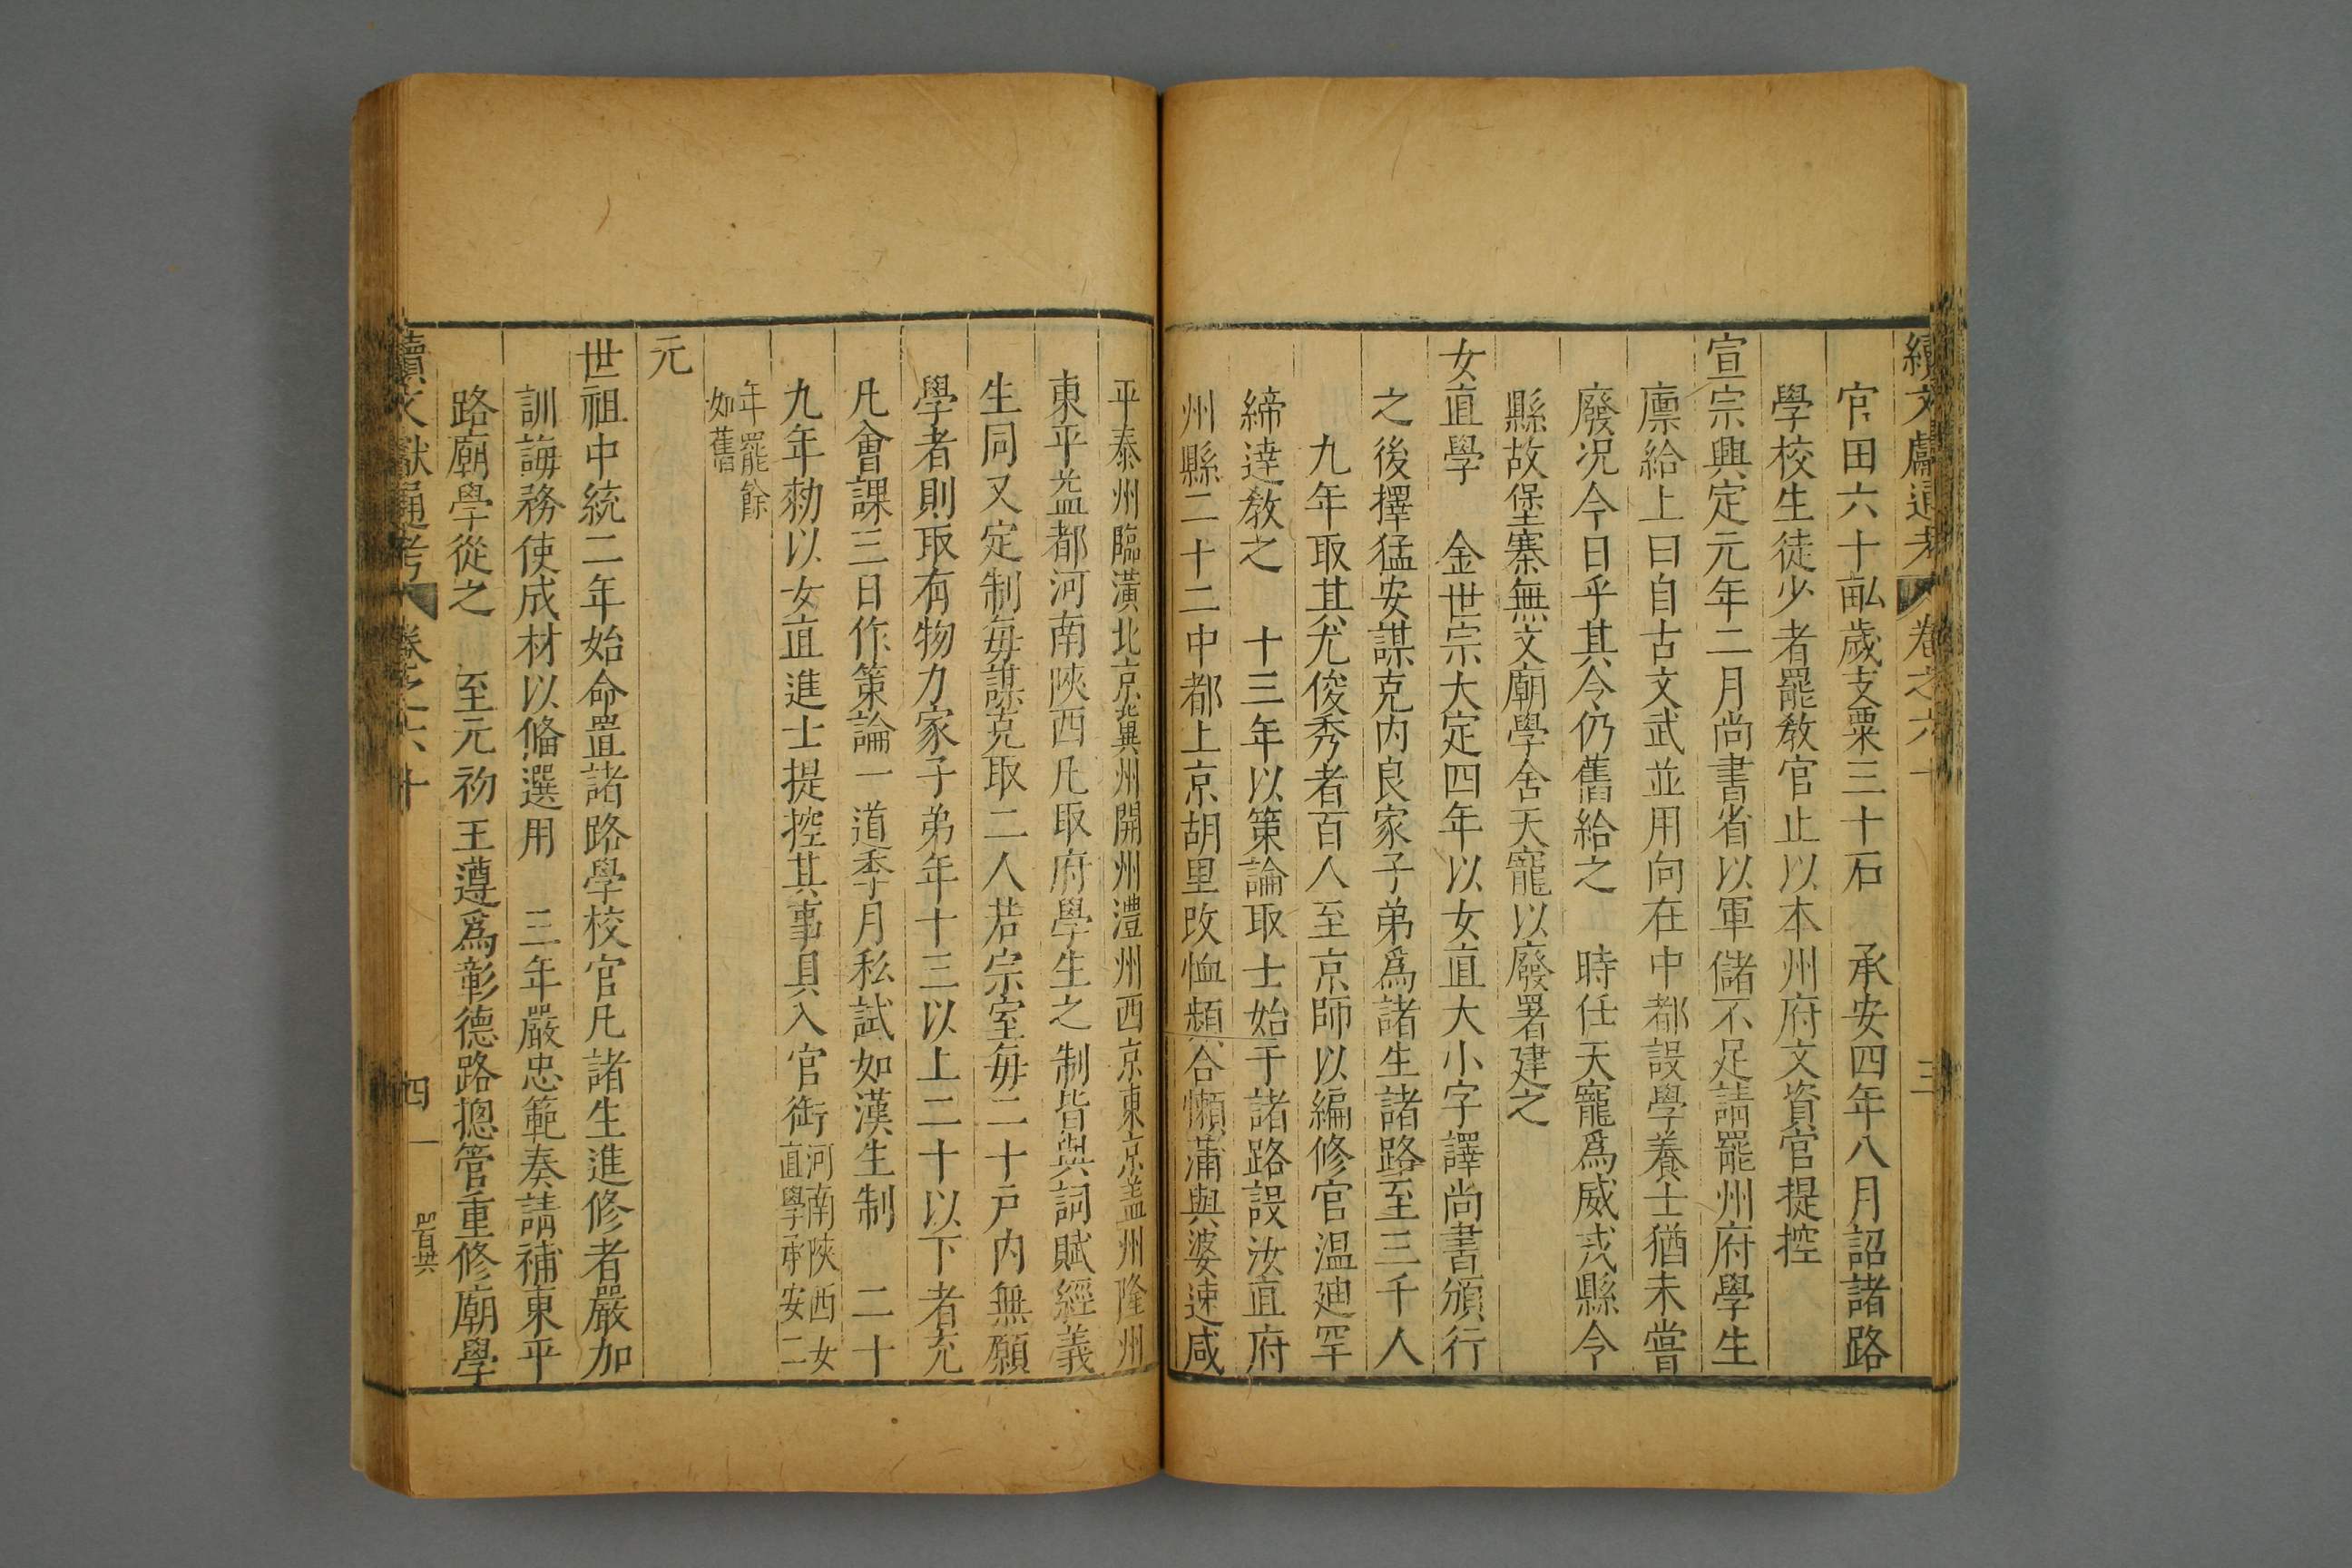 續文獻通考 卷之六十 三
官田六十畆歲支粟三十石　承安四年八月詔諸路
學校生徒少者罷教官止以本州府文資官提控
宣宗興定元年二月尚書省以軍儲不足請罷州府學生
廩給上曰自古文武並用向在中都設學養士猶未嘗
廢況今日乎其令仍舊給之　時任天寵爲威戎縣令
縣故堡寨無文廟學舍天寵以廢署建之
女直學　金世宗大定四年以女直大小字譯尚書頒行
之後擇猛安謀克内良家子弟爲諸生諸路至三千人
九年取其尤俊秀者百人至京師以編修官温廸罕
締達教之　十三年以策論取士始于諸路設汝直府
州縣二十二中都上京胡里改恤頻合懶蒲與婆速咸
平泰州臨潢北京冀州開州澧州西京東京盖州隆州
東平益都河南陜西凡取府學生之制皆與詞賦經義
生同又定制每謀克取二人若宗室每二十戸内無願
學者則取有物力家子弟年十三以上二十以下者充
凡會課三日作策論一道季月私試如漢生制　二十
九年勑以女直進士提控其事具入官銜河南陜西女直學承安二
年罷餘如舊
元
世祖中統二年始命置諸路學校官凡諸生進修者嚴加
訓誨務使成材以俻選用　三年嚴忠範奏請補東平
路廟學從之　至元初王遵爲彰德路摠管重修廟學
續文獻通考 卷之六十 四